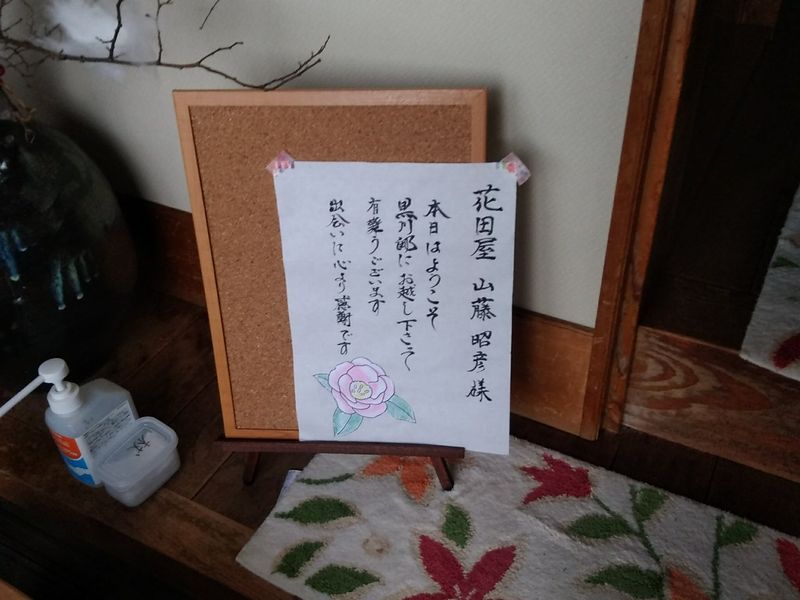 花田屋 山藤 昭彦 様
本日はようこそ
黒川郷にお越し下さって
有難うございます
出会いに心より感謝です